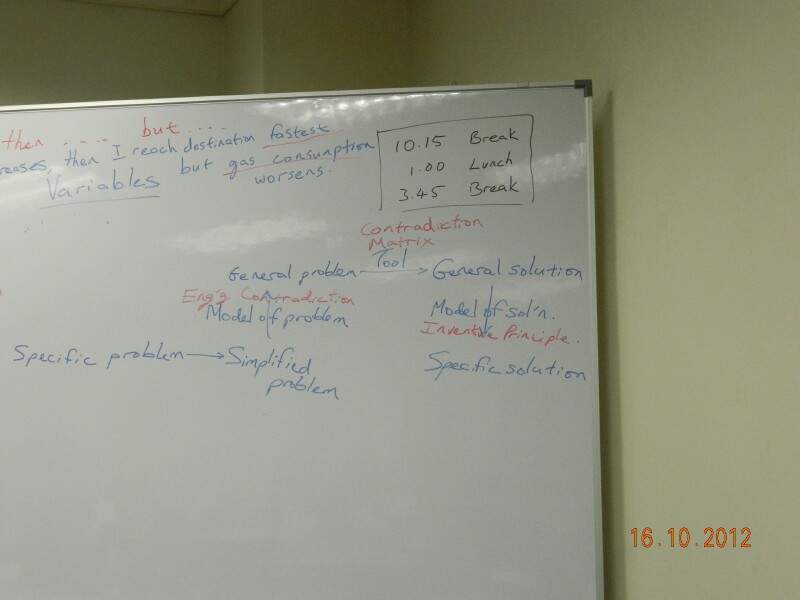 then .... but ....
reases, then I reach destination fastest
Variables but gas consumption
worsens.
10.15 Break
1.00 Lunch
3.45 Break
Contradiction
Matrix
General problem Tool General solution
Eng'g Contradiction
Model of problem Model of sol'n.
Inventive Principle.
Specific problem Simplified
problem
Specific solution
16.10.2012